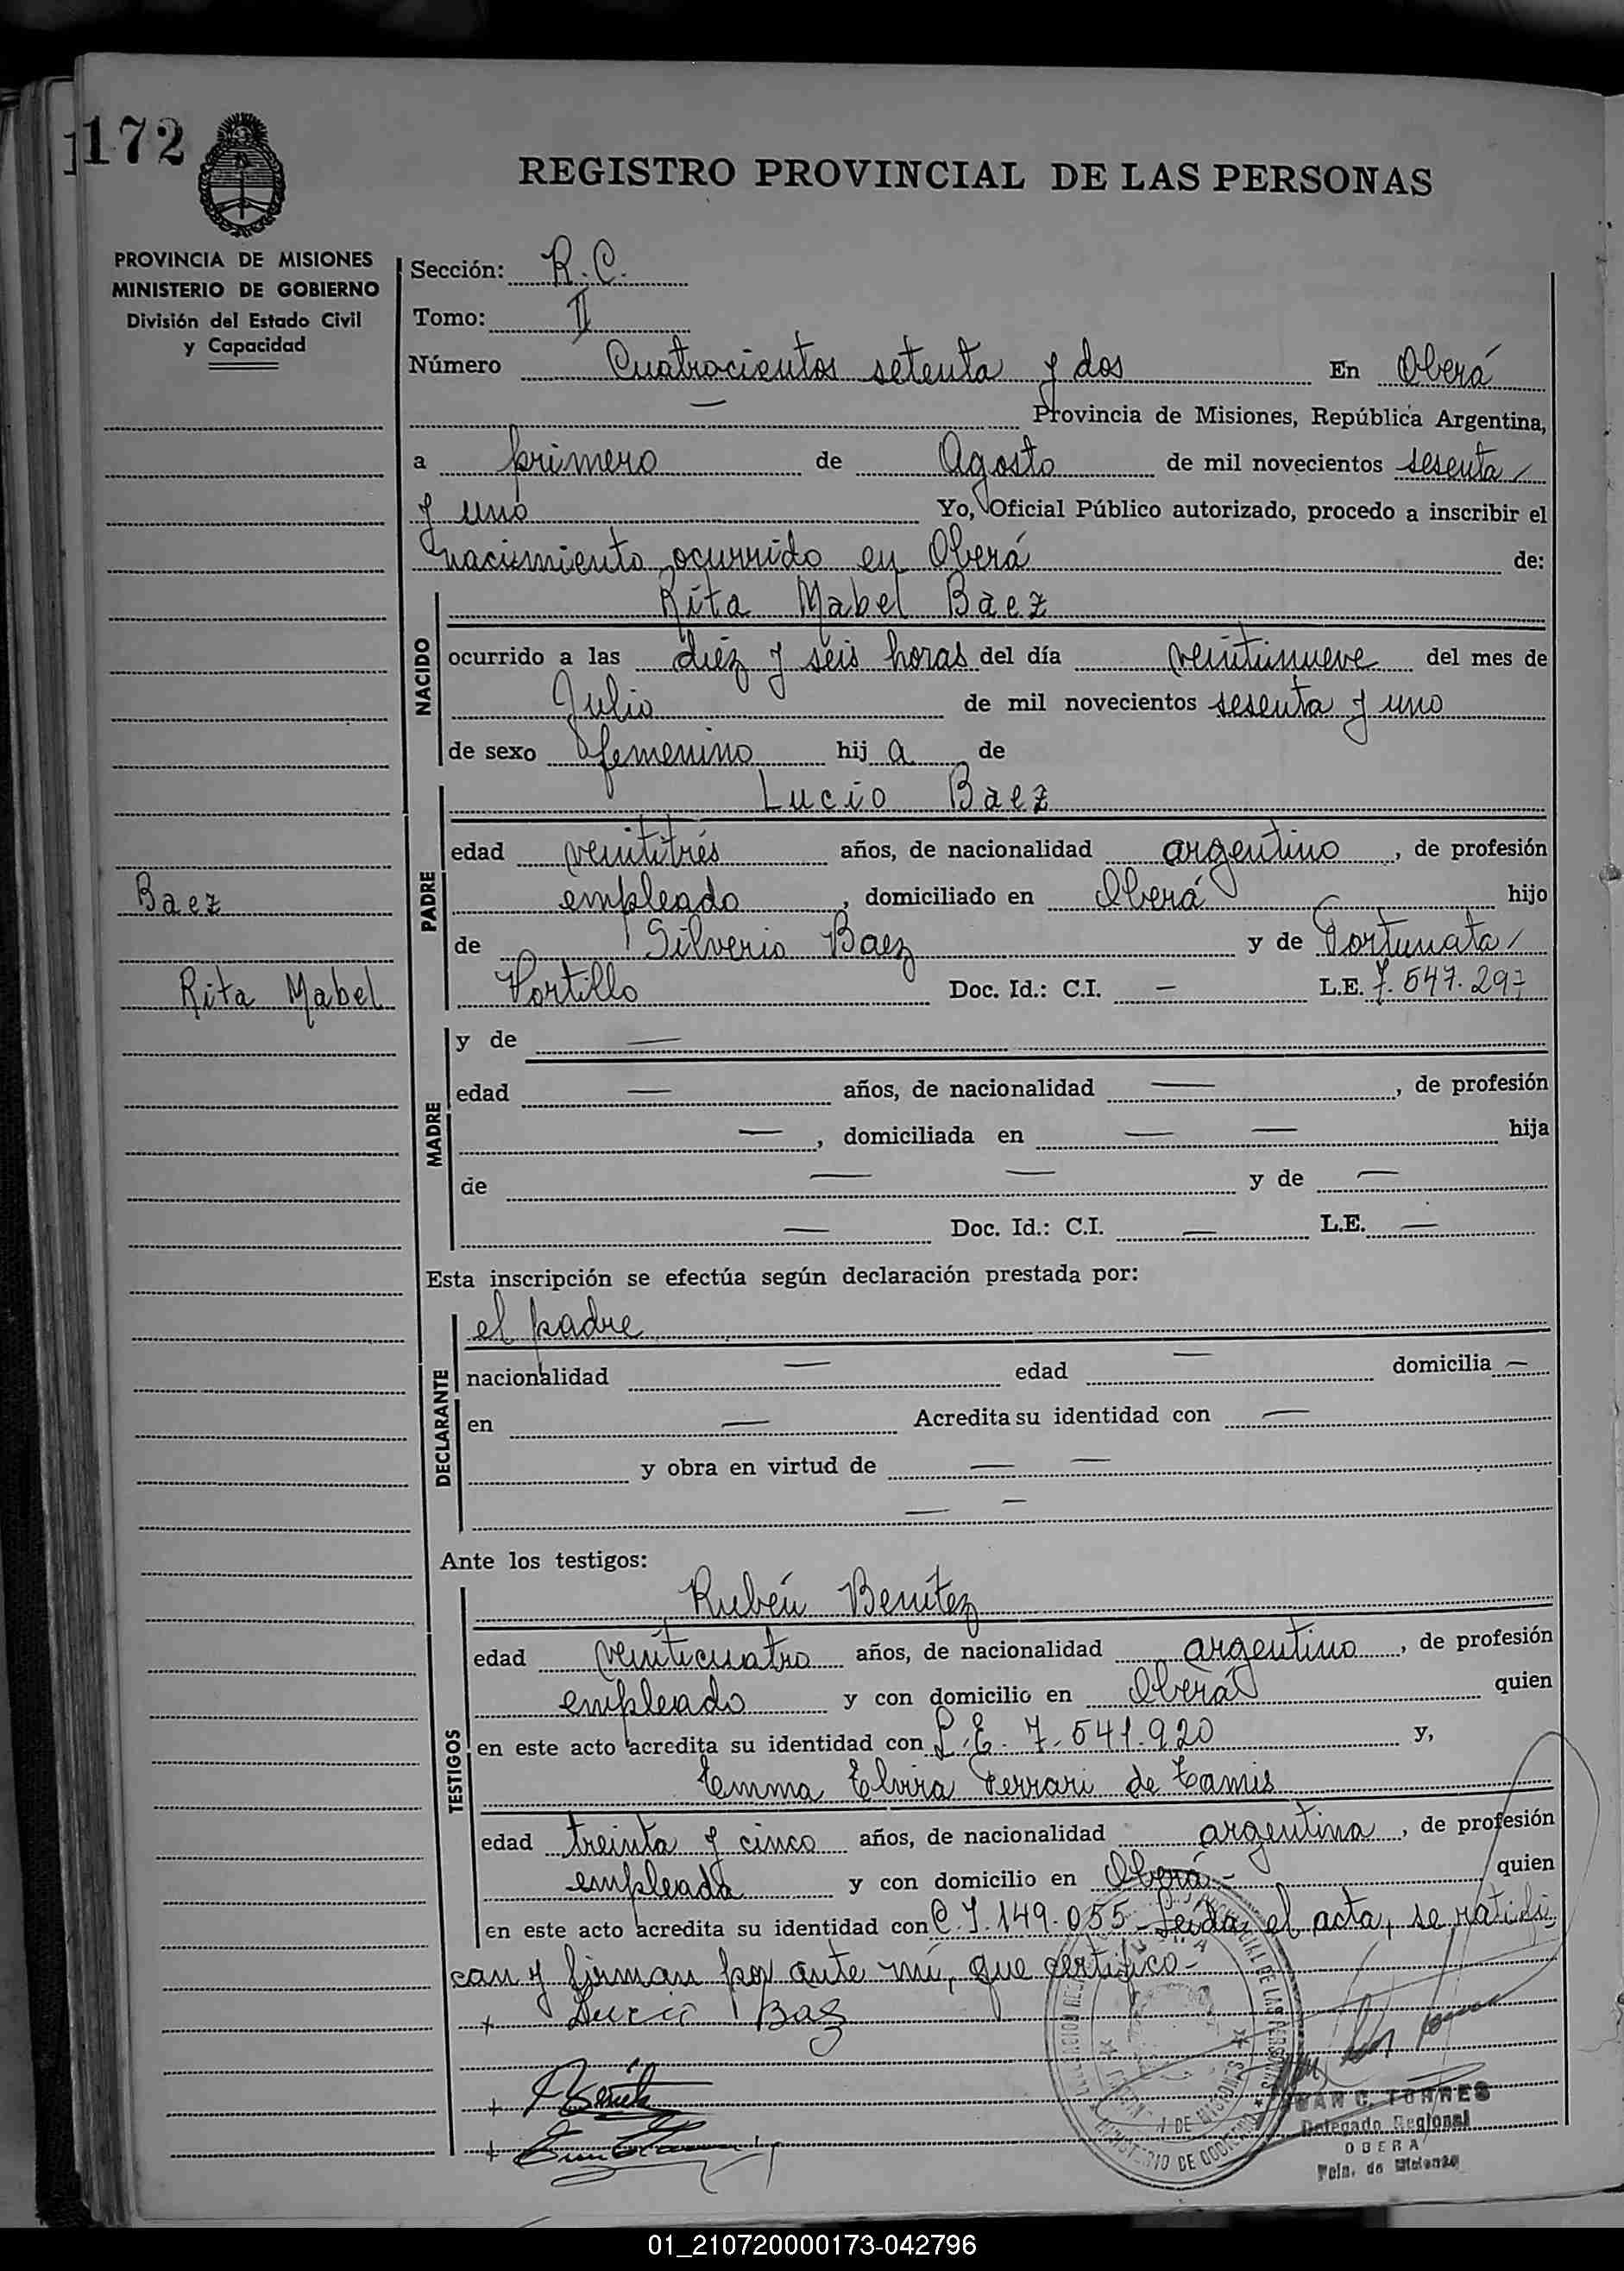 172
REGISTRO PROVINCIAL DE LAS PERSONAS
PROVINCIA DE MISIONES
MINISTERIO DE GOBIERNO
División del Estado Civil
y Capacidad
Sección: R. C.
Tomo: II
Número Cuatrocientos setenta y dos En Oberá
— Provincia de Misiones, República Argentina,
a primero de Agosto de mil novecientos sesenta /
y uno Yo, Oficial Público autorizado, procedo a inscribir el
nacimiento ocurrido en Oberá de:
NACIDO
Rita Mabel Baez
ocurrido a las diez y seis horas del día veintinueve del mes de
Julio de mil novecientos sesenta y uno
de sexo femenino hij a de
PADRE
Lucio Baez
edad veintitrés años, de nacionalidad argentino, de profesión
empleado, domiciliado en Oberá hijo
de Silverio Baez y de Fortunata /
Portillo Doc. Id.: C.I. — L.E. 7.547.297
Baez
Rita Mabel
MADRE
y de —
edad — años, de nacionalidad —, de profesión
—, domiciliada en — — hija
de — — y de —
— Doc. Id.: C.I. — L.E. —
Esta inscripción se efectúa según declaración prestada por:
DECLARANTE
el padre
nacionalidad — edad — domicilia —
en — Acredita su identidad con —
y obra en virtud de — —
— —
Ante los testigos:
TESTIGOS
Rubén Benítez
edad veinticuatro años, de nacionalidad argentino, de profesión
empleado y con domicilio en Oberá quien
en este acto acredita su identidad con L.E. 7.541.920 y,
Emma Elvira Ferrari de Tamis
edad treinta y cinco años, de nacionalidad argentina, de profesión
empleada y con domicilio en Oberá.- quien
en este acto acredita su identidad con C.I. 149.055 - Leída el acta, se ratifi
can y firman por ante mí, que certifico.-
+ Lucio Baz
+
+
JUAN C. TORRES
Delegado Regional
OBERA
Pcia. de Misiones
01_210720000173-042796